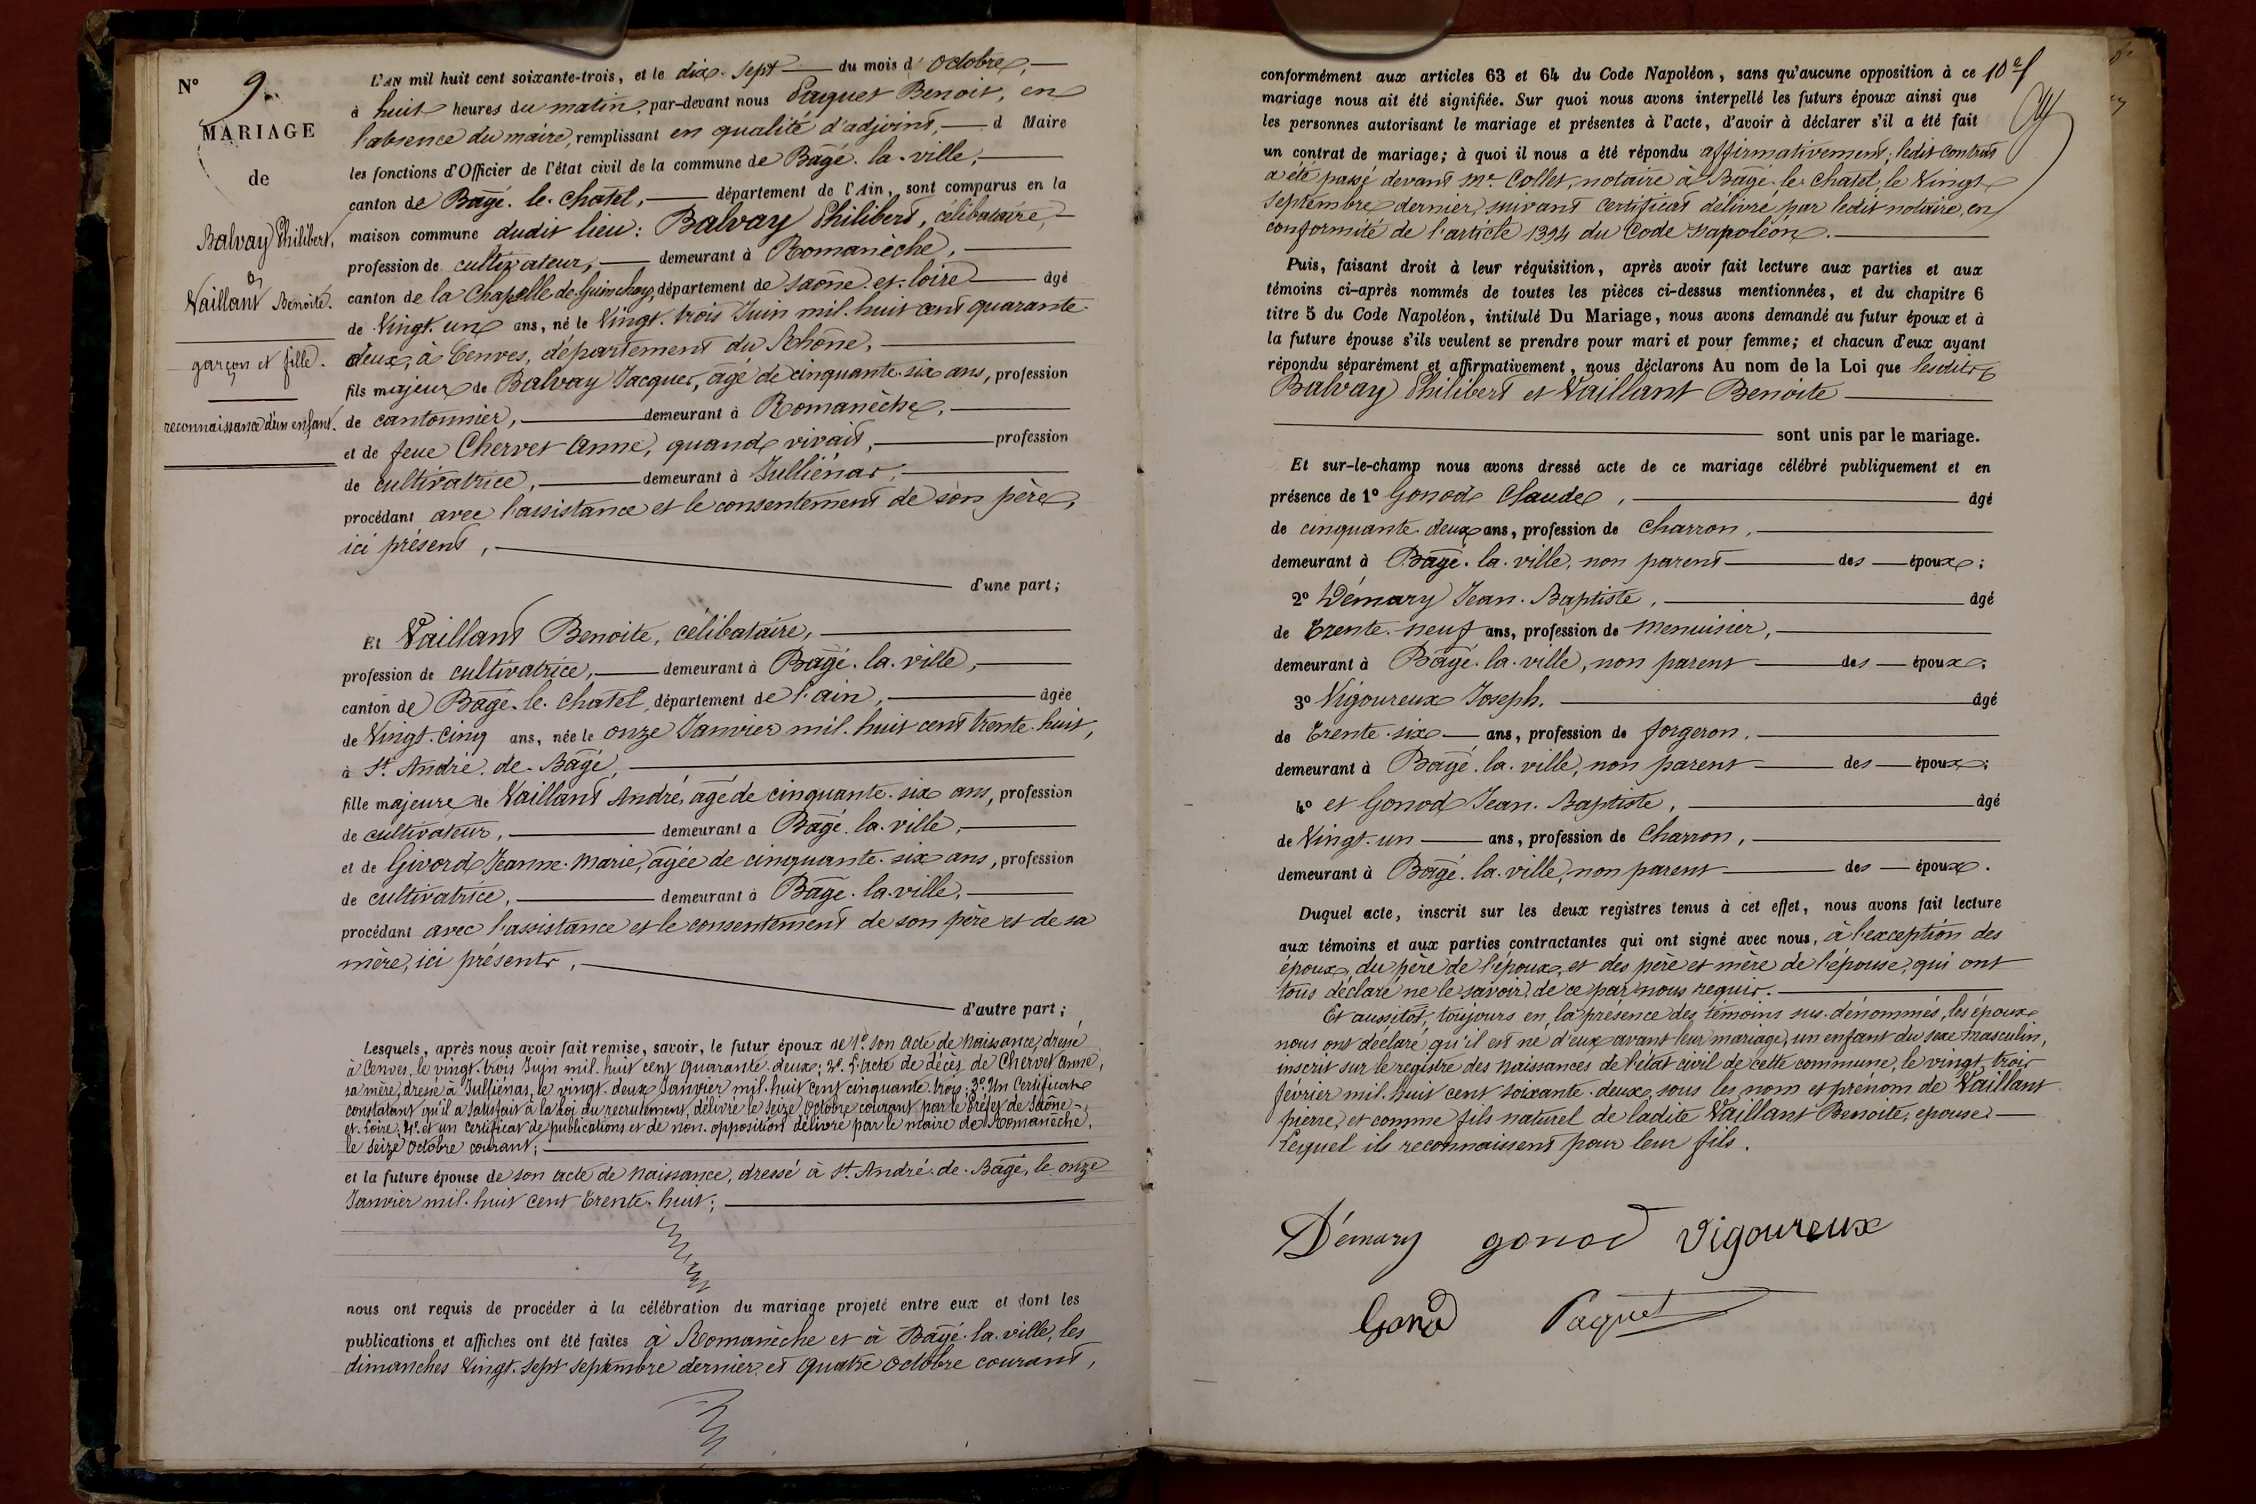 N° 9.
MARIAGE
de
Balvay Philibert,
&
Vaillant Benoite.
garçon et fille.
reconnaissance d'un enfant.
L'AN mil huit cent soixante-trois, et le dix-sept du mois d'octobre,
à huit heures du matin, par-devant nous Paquet Benoit, en
l'absence du maire, remplissant en qualité d'adjoint, d Maire
les fonctions d'Officier de l'état civil de la commune de Bâgé-la-ville,
canton de Bâgé-le-Chatel, département de l'Ain, sont comparus en la
maison commune dudit lieu: Balvay Philibert, célibataire,
profession de cultivateur, demeurant à Romanèche,
canton de la Chapelle-de-Guinchay, département de Saône-et-Loire âgé
de Vingt-un ans, né le Vingt-trois Juin mil-huit cent quarante-
deux, à Cenves, département du Rhône,
fils majeur de Balvay Jacques, âgé de cinquante-six ans, profession
de cantonnier, demeurant à Romanèche,
et de feue Chervet Anne, quand vivait, profession
de cultivatrice, demeurant à Julliénas,
procédant avec l'assistance et le consentement de son père,
ici présent,
d'une part;
Et Vaillant Benoite, célibataire,
profession de cultivatrice, demeurant à Bâgé-la-ville,
canton de Bâgé-le-Chatel, département de l'ain, âgée
de Vingt-cinq ans, née le onze Janvier mil-huit cent trente-huit,
à St. André-de-Bâgé,
fille majeure de Vaillant André, âgé de cinquante-six ans, profession
de cultivateur, demeurant à Bâgé-la-ville,
et de Givord Jeanne-Marie, âgée de cinquante-six ans, profession
de cultivatrice, demeurant à Bâgé-la-ville,
procédant avec l'assistance et le consentement de son père et de sa
mère, ici présents,
d'autre part;
Lesquels, après nous avoir fait remise, savoir, le futur époux de 1°. son acte de Naissance, dressé
à Cenves, le vingt-trois Juin mil-huit cent quarante-deux; 2°. l'acte de décès de Chervet Anne,
sa mère, dressé à Julliénas, le vingt-deux Janvier mil-huit cent cinquante-trois; 3°. Un Certificat
constatant qu'il a satisfait à la Loi du recrutement, délivré le seize Octobre courant par le Préfet de Saône-
et-Loire; 4°. et un certificat de publications et de non-opposition délivré par le maire de Romanèche,
le seize Octobre courant;
et la future épouse de son acte de naissance, dressé à St. André-de-Bâgé, le onze
Janvier mil-huit cent trente-huit;
nous ont requis de procéder à la célébration du mariage projeté entre eux et dont les
publications et affiches ont été faites à Romanèche et à Bâgé-la-ville, les
dimanches vingt-sept septembre dernier et quatre octobre courant,
10e f
conformément aux articles 63 et 64 du Code Napoléon, sans qu'aucune opposition à ce
mariage nous ait été signifiée. Sur quoi nous avons interpellé les futurs époux ainsi que
les personnes autorisant le mariage et présentes à l'acte, d'avoir à déclarer s'il a été fait
un contrat de mariage; à quoi il nous a été répondu affirmativement, ledit contrat
a été passé devant Me. Collet, notaire à Bâgé-le-Chatel, le Vingt
septembre dernier, suivant certificat délivré par ledit notaire, en
conformité de l'article 1394 du Code Napoléon.
Puis, faisant droit à leur réquisition, après avoir fait lecture aux parties et aux
témoins ci-après nommés de toutes les pièces ci-dessus mentionnées, et du chapitre 6
titre 5 du Code Napoléon, intitulé Du Mariage, nous avons demandé au futur époux et à
la future épouse s'ils veulent se prendre pour mari et pour femme; et chacun d'eux ayant
répondu séparément et affirmativement, nous déclarons Au nom de la Loi que lesdits
Balvay Philibert et Vaillant Benoite
sont unis par le mariage.
Et sur-le-champ nous avons dressé acte de ce mariage célébré publiquement et en
présence de 1° Gonod Claude, âgé
de cinquante-deux ans, profession de Charron,
demeurant à Bâgé-la-ville, non parent des époux;
2° Démary Jean-Baptiste, âgé
de Trente-neuf ans, profession de menuisier,
demeurant à Bâgé-la-ville, non parent des époux;
3° Vigoureux Joseph. âgé
de Trente-six ans, profession de forgeron,
demeurant à Bâgé-la-ville, non parent des époux;
4° et Gonod Jean-Baptiste, âgé
de Vingt-un ans, profession de Charron,
demeurant à Bâgé-la-ville, non parent des époux.
Duquel acte, inscrit sur les deux registres tenus à cet effet, nous avons fait lecture
aux témoins et aux parties contractantes qui ont signé avec nous, à l'exception des
époux, du père de l'époux, et des père et mère de l'épouse, qui ont
tous déclaré ne le savoir, de ce par nous requis.
Et aussitôt, toujours en la présence des témoins sus-dénommés, les époux
nous ont déclaré qu'il est né d'eux avant leur mariage, un enfant du sexe masculin,
inscrit sur le registre des naissances de l'état civil de cette commune, le vingt trois
février mil-huit cent soixante-deux, sous les nom et prénom de Vaillant
pierre, et comme fils naturel de ladite Vaillant Benoite, épouse;
Lequel ils reconnaissent pour leur fils.
Démary gonod Vigoureux
Gonod Paquet